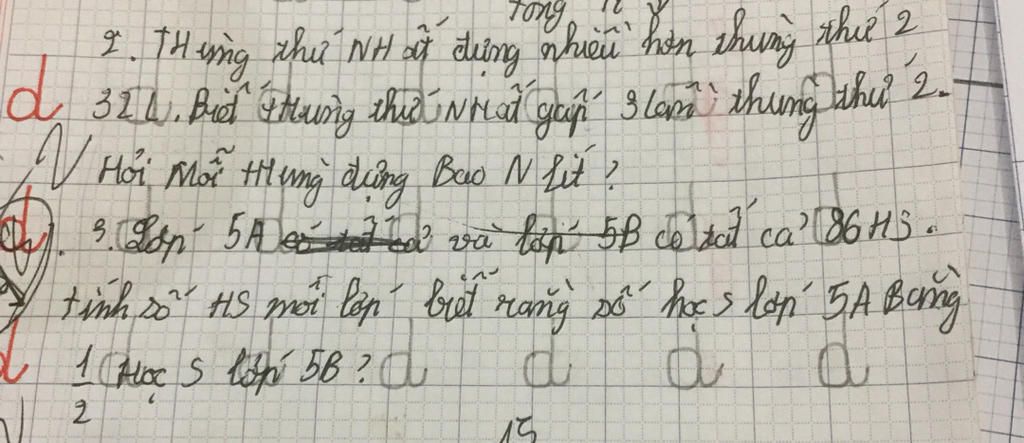 Tổng
2. THùng thứ NHất đựng nhiều hơn thùng thứ 2
d 32L. Biết tHùng thứ NHất gấp 3 lầm thùng thứ 2.
Hỏi Mỗi tHùng đựng Bao N lít?
d. 3. Lớp 5A và lớp 5B có tất cả 86 HS.
tính số HS mỗi lớp biết rằng số học s lớp 5A Bằng
d 1/2 Học s lớp 5B? d d d d
15